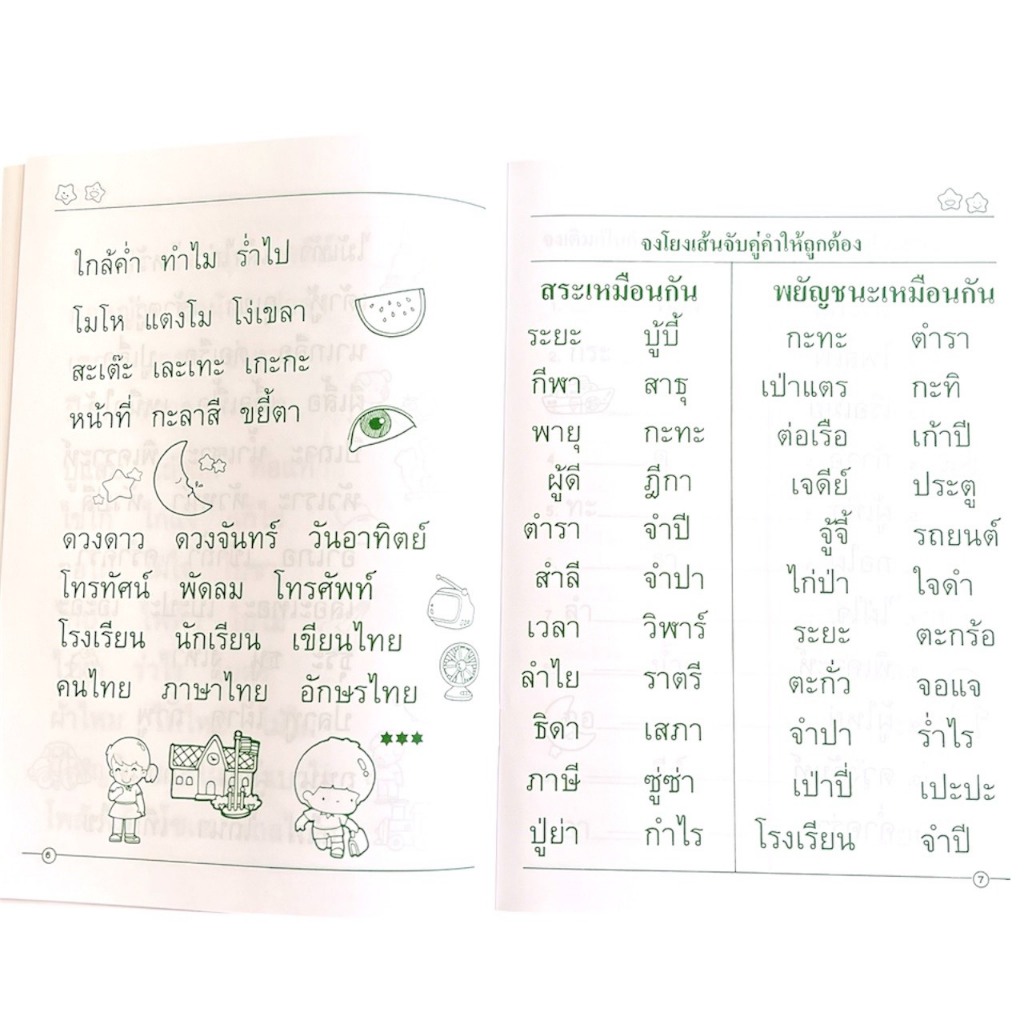 ใกล้ค่ำ ทำไม ร่ำไป
โมโห แตงโม โง่เขลา
สะเต๊ะ เละเทะ เกะกะ
หน้าที่ กะลาสี ขยี้ตา
ดวงดาว ดวงจันทร์ วันอาทิตย์
โทรทัศน์ พัดลม โทรศัพท์
โรงเรียน นักเรียน เขียนไทย
คนไทย ภาษาไทย อักษรไทย
6
จงโยงเส้นจับคู่คำให้ถูกต้อง
สระเหมือนกัน พยัญชนะเหมือนกัน
ระยะ บู้บี้ กะทะ ตำรา
กีฬา สาธุ เป่าแตร กะทิ
พายุ กะทะ ต่อเรือ เก้าปี
ผู้ดี ฎีกา เจดีย์ ประตู
ตำรา จำปี จู้จี้ รถยนต์
สำลี จำปา ไก่ป่า ใจดำ
เวลา วิพาร์ ระยะ ตะกร้อ
ลำไย ราตรี ตะกั่ว จอแจ
ธิดา เสภา จำปา ร่ำไร
ภาษี ซู่ซ่า เป่าปี่ เปะปะ
ปู่ย่า กำไร โรงเรียน จำปี
7